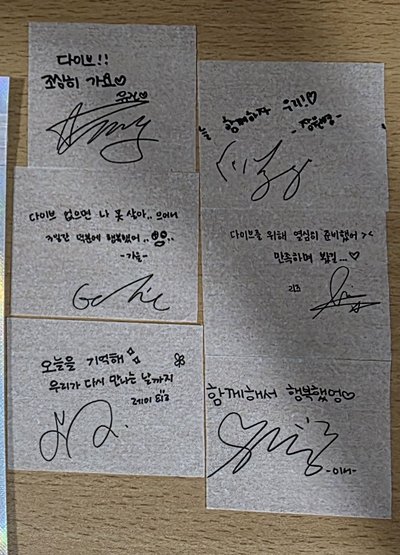 다이브!!
조심히 가요♡
유진
함께하자 우리!♡
-장원영-
다이브 없으면 나 못 살아..
덕분에 행복했어..
-가을-
다이브를 위해 열심히 준비했어 ><
만족하며 봤길...♡
리즈
오늘을 기억해
우리가 다시 만나는 날까지
레이
함께해서 행복했엉♡
-이서-